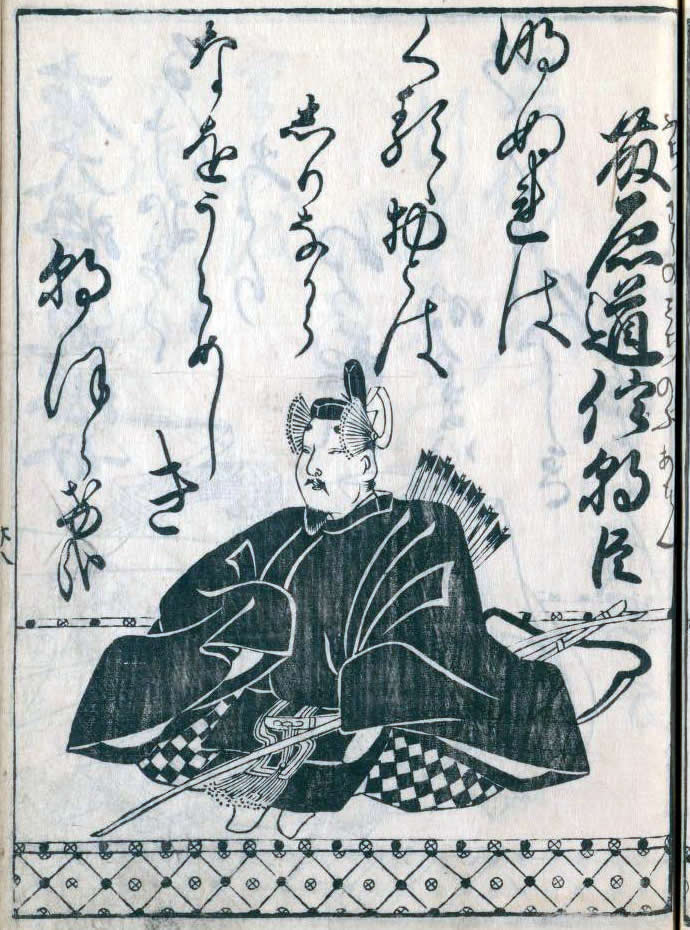 藤原道信朝臣
明ぬれは
くるゝ物とは
しりなから
なをうらめし
き
朝ほらけ哉